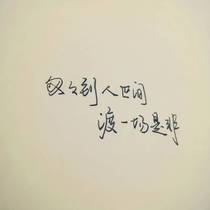 匆々到人世间
渡一场是非